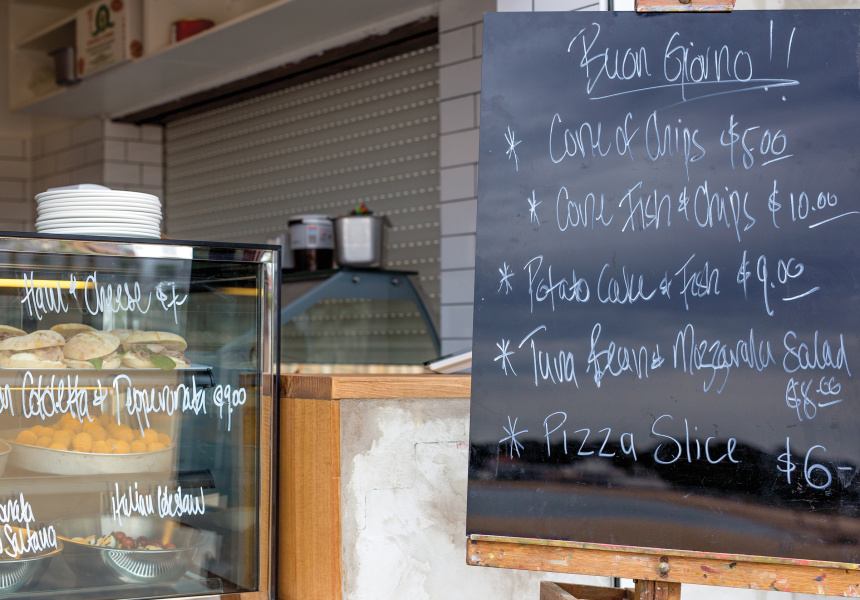 Buon Giorno!!
* Cone of Chips $5.00
* Cone Fish & Chips $10.00
* Potato Cake & Fish $9.00
* Tuna Bean & Mozzarela Salad
$8.00
* Pizza Slice $6-
Ham & Cheese $7-
& Pepperonata $9.00
Italian Coleslaw
Sultana